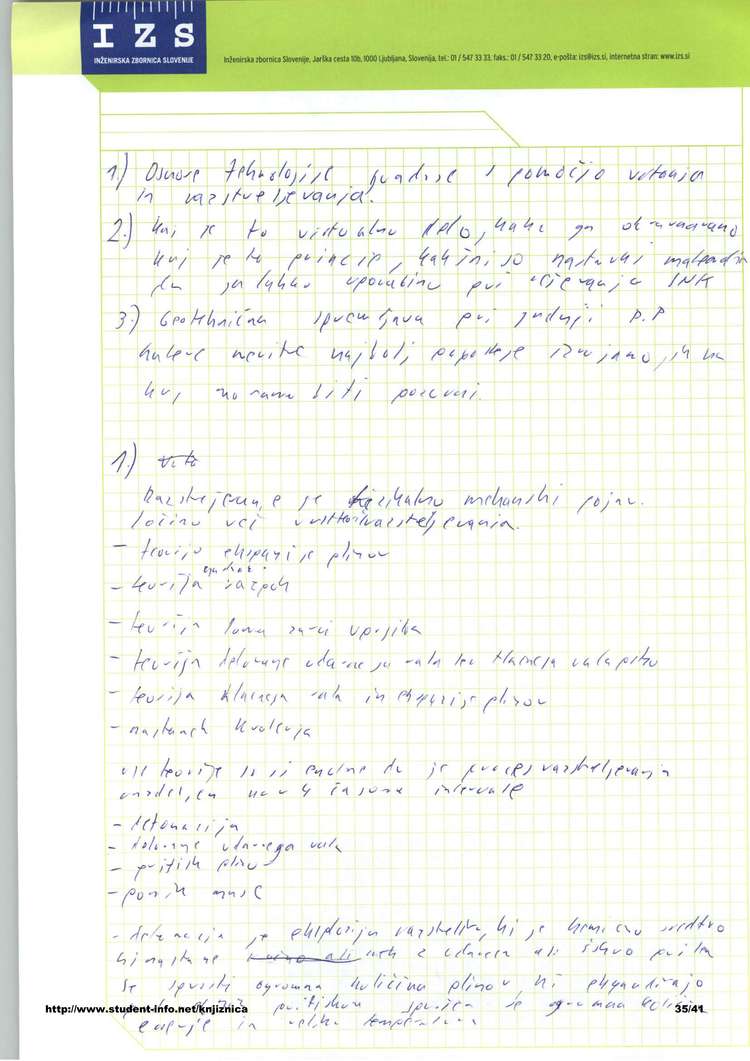 IZS
INŽENIRSKA ZBORNICA SLOVENIJE
Inženirska zbornica Slovenije, Jarška cesta 10b, 1000 Ljubljana, Slovenija, tel.: 01 / 547 33 33, faks.: 01 / 547 33 20, e-pošta: izs@izs.si, internetna stran: www.izs.si
1.) Osnove tehnologije gradnje s pomočjo vrtanja
in razstreljevanja.
2.) Kaj je to virtualno delo, kako ga
kaj je to princip, kakšni so nastavki
da ga lahko uporabimo pri reševanju SNK
3.) Geotehnična spremljava pri gradnji P.P
katere meritve najbolj izvajamo in na
kaj moramo biti pozorni.
1.)
Razstreljevanje je fizikalno mehanski pojav.
Ločimo več razstreljevanja.
- teorijo ekspanzije plinov
- teorija razpok
- teorija loma zaradi upogiba
- teorija delovanje udarnega vala ter tlačnega vala
- teorija tlačnega vala in ekspanzije plinov
- nastanek kraterja
vse teorije so si enotne da je proces razstreljevanja
razdeljen na 4 časovne intervale
- detonacija
- delovanje udarnega vala
- pritisk plinov
- pomik mase
- detonacija je eksplozija razstreliva, ki je kemično sredstvo
ki nastane z udarcem ali iskro
se sprosti ogromna količina plinov, ki ekspandirajo
pritiskom se ogromna količina
energije in velika temperatura
http://www.student-info.net/knjiznica
35/41